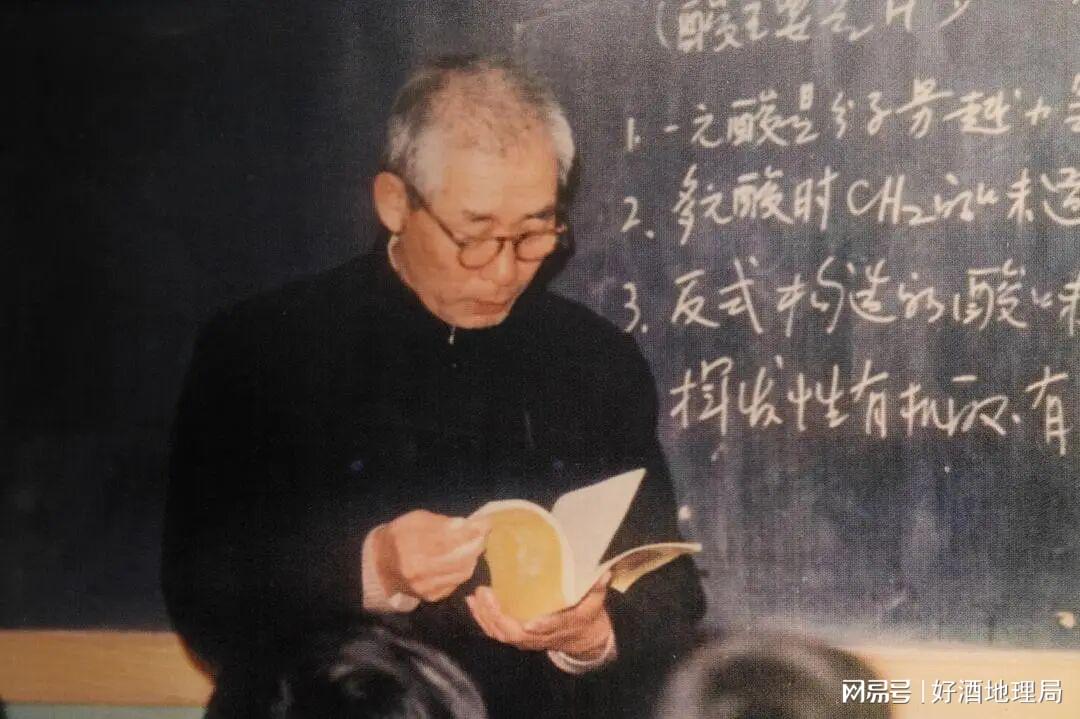 (酸主要是H
1. 一元酸是分子量越大
2. 多元酸时CH₂的味
3. 反式构造的酸味
挥发性有机酸.有
网易号 | 好酒地理局